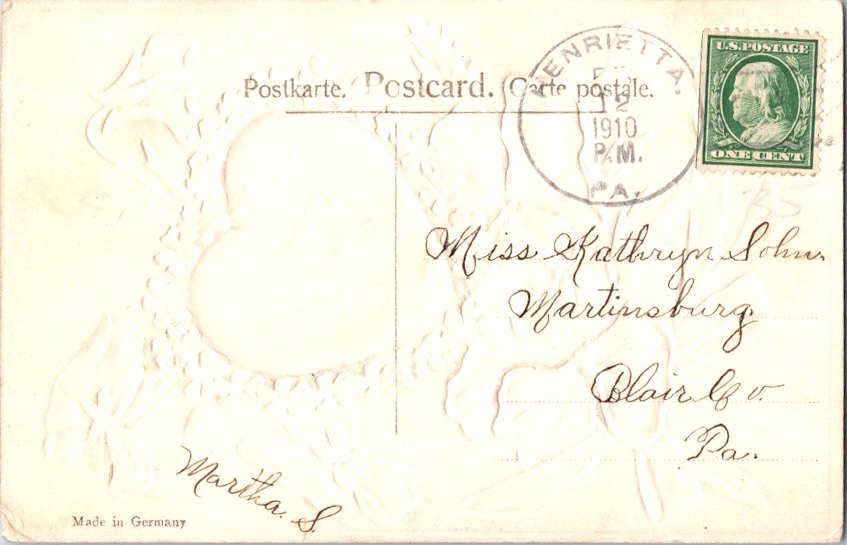 Postkarte. Postcard. Carte postale.
HENRIETTA.
12
1910
P.M.
PA.
U.S. POSTAGE
ONE CENT
Miss Kathryn Sohn.
Martinsburg.
Blair Co.
Pa.
Martha. S.
Made in Germany